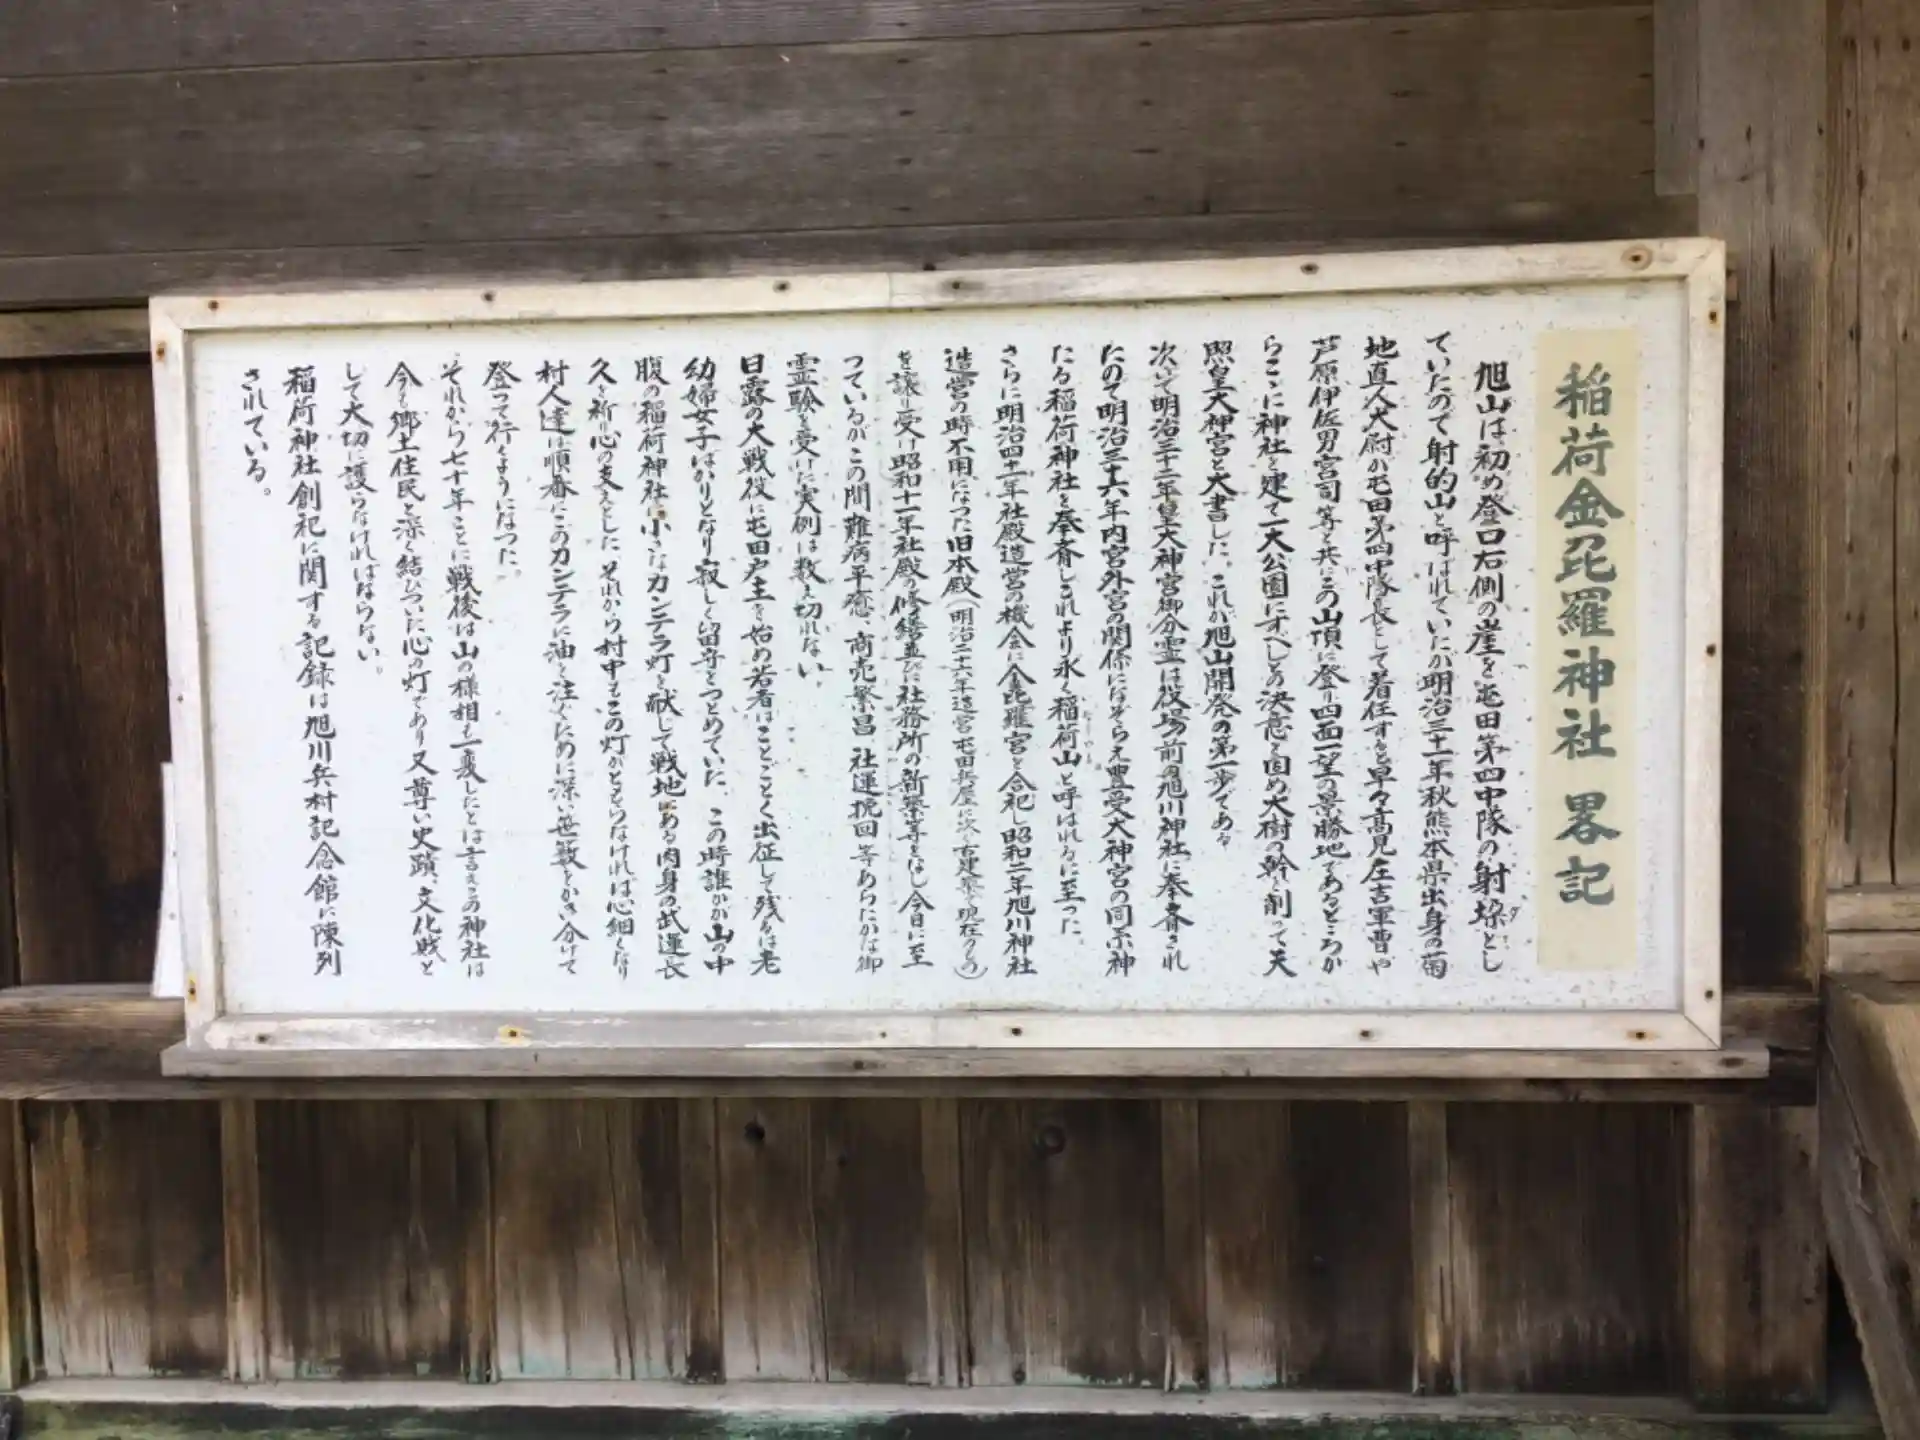 稲荷金毘羅神社 畧記
旭山は初め登口右側の崖を屯田第四中隊の射垜とし
ていたので射的山と呼ばれていたが明治三十一年秋熊本県出身の菊
地直人大尉が屯田第四中隊長として着任すると早々高見庄吉軍曹や
芦原伊佐男宮司等と共にこの山頂に登り四面一望の景勝地であるところか
らここに神社を建て一大公園にすべしとの決意を固め大樹の幹を削って天
照皇大神宮と大書した。これが旭山開発の第一歩である
次いで明治三十二年皇大神宮御分霊は役場前の旭川神社に奉斎され
たので明治三十六年内宮外宮の関係になぞらえ豊受大神宮の同系神
たる稲荷神社を奉斎しこれより永く稲荷山と呼ばれるに至った。
さらに明治四十一年社殿造営の機会に金毘羅宮を合祀し昭和二年旭川神社
造営の時不用になった旧本殿(明治二十六年造宮屯田兵屋に次ぐ古建築で現在のもの)
を譲り受け昭和十一年社殿の修繕並びに社務所の新築等をはし今日に至
っているがこの間難病平癒、商売繁昌 社運挽回等あらたかな御
霊験を受けた実例は数え切れない。
日露の大戦役に屯田戸主を始め若者はことごとく出征して残るは老
幼婦女子ばかりとなり寂しく留守をつとめていた。この時誰かが山の中
腹の稲荷神社に小さなカンテラ灯を献じて戦地にある肉身の武運長
久を祈り心の支えとした、それから村中もこの灯がともらなければ心細くなり
村人達は順番にこのカンテラに油を注ぐために深い笹薮をかき分けて
登って行くようになった。
それから七十年ことに戦後は山の様相も一変したとは言えこの神社は
今も郷土住民と深く結びついた心の灯であり又尊い史蹟、文化財と
して大切に護らなければならない。
稲荷神社創祀に関する記録は旭川兵村記念館に陳列
されている。